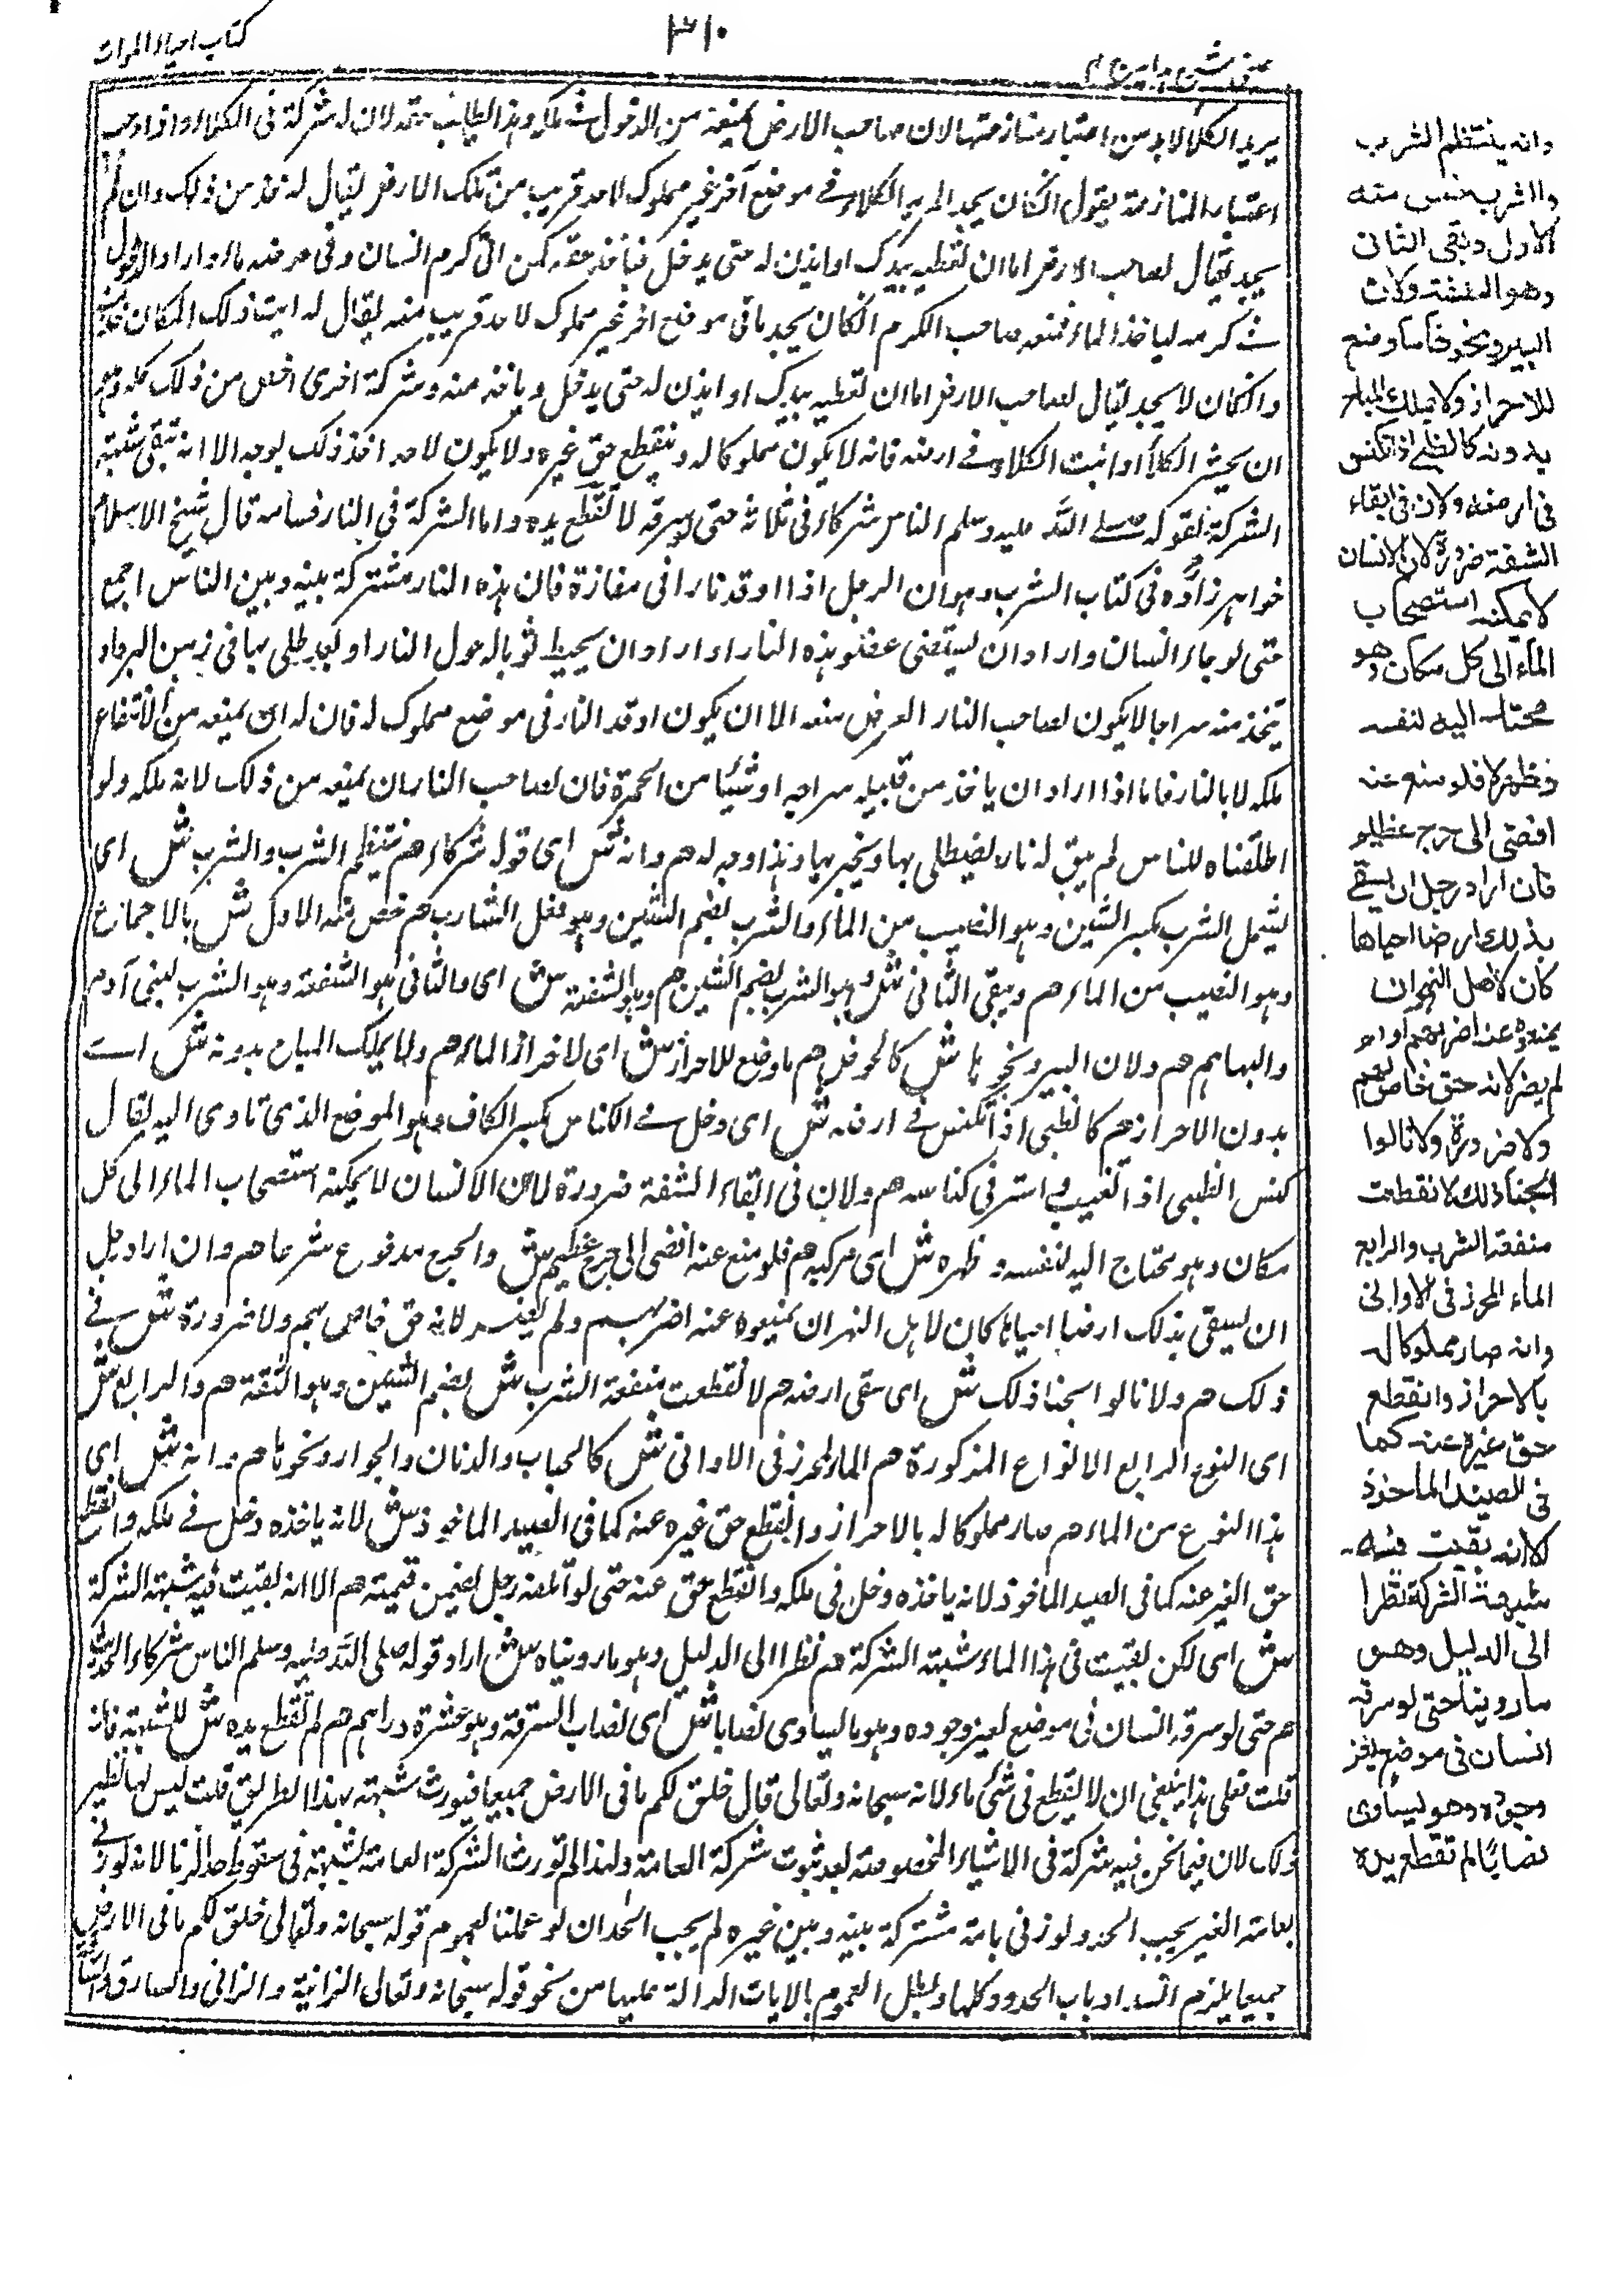 كتاب احياء الموات
٣١٠
يريد الكلأ لا بد من اعتبار منازعتها لان صاحب الارض يمنعه من الدخول في ملكه وهذا الطالب حقه لان له شركة في الكلاء واذا وجب
اعتبار المنازعة يقول ان كان يجد المريد الكلاء في موضع آخر غير مملوك لاحد قريب من تلك الارض يقال له خذ من ذلك وان لم
يجد يقال لصاحب الارض اما ان تعطيه بيدك او ايذن له حتى يدخل فياخذ حقه كمن اتى كرم انسان وفي حوضه ماء واراد الدخول
في كرمه لياخذ الماء فمنعه صاحب الكرم ان كان يجد ماء في موضع اخر غير مملوك لاحد قريب منه يقال له ايت ذلك المكان فخذ منه
وان كان لا يجد يقال لصاحب الارض اما ان تعطيه بيدك او ايذن له حتى يدخل وياخذ منه وشركة اخرى اخص من ذلك كله وهو
ان يحش الكلأ او انبت الكلاء في ارضه فانه لا يكون مملوكا له وينقطع حق غيره ولا يكون لاحد اخذ ذلك بوجه الا انه تبقى شبهة
الشركة لقوله صلى الله عليه وسلم الناس شركاء في ثلاثة حتى لو سرقه لا تقطع يده واما الشركة في النار فسامه قال شيخ الاسلام
خواهر زاده في كتاب الشرب وهو ان الرجل اذا اوقد نارا في مفازة فان هذه النار مشتركة بينه وبين الناس اجمع
حتى لو جاء انسان واراد ان يستضئ بضوء هذه النار او اراد ان يخيط ثوبا له حول النار او يصطلي بها في زمن البرد او
يتخذ منه سراجا لا يكون لصاحب النار العرض منعه الا ان يكون اوقد النار في موضع مملوك له فان له ان يمنعه من الانتفاع
ملكه لا بالنار فاما اذا اراد ان ياخذ من فتيلة سراجه او شيئا من الجمرة فان لصاحب النار ان يمنعه من ذلك لانه ملكه ولو
اطلقناه للناس لم يبق له نار ليصطلي بها ويخبز بها وهذا وجه له هم وانه ش اى قوله شركاء هم ينتظم الشرب والشرب ش اى
يشمل الشرب بكسر الشين وهو النصيب من الماء والشرب بضم الشين وهو فعل الشارب هم خص منه الاول ش بالاجماع
وهو النصيب من الماء هم ويبقى الثاني ش وهو الشرب بضم الشين هم وهو الشفة ش اى والثاني هو الشفة وهو الشرب لبني آدم
والبهايم هم ولان البير ونحوها ش كالحوض هم ما وضع للاحراز ش اى لاحراز الماء هم ولا يملك المباح بدونه ش اى
بدون الاحراز هم كالظبي اذا تكنس في ارضه ش اى دخل في الكناس بكسر الكاف وهو الموضع الذي تاوى اليه يقال
كنس الظبي اذا تغيب واستتر في كناسه هم ولان في ابقاء الشفة ضرورة لان الانسان لا يمكنه استصحاب الماء الى كل
مكان وهو محتاج اليه لنفسه وظهره ش اى مركبه هم فلو منع عنه افضى الى حرج عظيم ش والحرج مدفوع شرعا هم وان اراد رجل
ان يسقى بذلك ارضا احياها كان لاهل النهر ان يمنعوه عنه اضر بهم او لم يضر لانه حق خاص بهم ولا ضرورة ش في
ذلك هم ولانا لو ابحنا ذلك ش اى سقى ارضه هم لانقطعت منفعة الشرب ش بضم الشين وهو الشفة هم والرابع ش
اى النوع الرابع الانواع المذكورة هم الماء المحرز في الاواني ش كالحباب والدنان والجرار ونحوها هم وانه ش اى
هذا النوع من الماء هم صار مملوكا له بالاحراز وانقطع حق غيره عنه كما في الصيد الماخوذ ش لانه ياخذه دخل في ملكه وانقطع
حق الغير عنه كما في الصيد الماخوذ لانه ياخذه دخل في ملكه وانقطع حق عنه حتى لو اتلفه رجل يضمن قيمته هم الا انه بقيت فيه شبهة الشركة
ش اى لكن بقيت في هذا الماء شبهة الشركة هم نظرا الى الدليل وهو ما روينا ش اراد قوله صلى الله عليه وسلم الناس شركاء الحديث
هم حتى لو سرقه انسان في موضع يعز وجوده وهو يساوى نصابا ش اى نصاب السرقة وهو عشرة دراهم هم لم تقطع يده ش للشبهة فان
قلت فعلى هذا ينبغي ان لا يقطع في شئ ما لانه سبحانه وتعالى قال خلق لكم ما في الارض جميعا فيورث شبهة بهذا الطريق قلت ليس لها نظير
ذلك لان فيما نحن فيه شركة في الاشياء المخصوصة بعد ثبوت شركة العامة ولهذا لم تورث الشركة العامة لشبهة في سقوط حد الزنا لانه لو زنى
بامته الغير يجب الحد ولو زنى بامة مشتركة بينه وبين غيره لم يجب الحد ان لو عملنا بعموم قوله سبحانه وتعالى خلق لكم ما في الارض
جميعا يلزم انسداد باب الحدود كلها ولبطل العموم بالايات الدالة عليها من نحو قوله سبحانه وتعالى الزانية والزاني والسارق والسارقة
وانه ينتظم الشرب
والشرب خص منه
الاول وبقى الثاني
وهو الشفة ولان
البير ونحوها ما وضع
للاحراز ولا يملك المباح
بدونه كالظبي اذا تكنس
في ارضه ولان في ابقاء
الشفة ضرورة لان الانسان
لا يمكنه استصحاب
الماء الى كل مكان وهو
محتاج اليه لنفسه
وظهره فلو منع عنه
افضى الى حرج عظيم
فان اراد رجل ان يسقى
بذلك ارضا احياها
كان لاهل النهر ان
يمنعوه عنه اضر بهم او
لم يضر لانه حق خاص لهم
ولا ضرورة ولانا لو
ابحنا ذلك لانقطعت
منفعة الشرب والرابع
الماء المحرز في الاواني
وانه صار مملوكا له
بالاحراز وانقطع
حق غيره عنه كما
في الصيد الماخوذ
الا انه بقيت فيه
شبهة الشركة نظرا
الى الدليل وهو
ما روينا حتى لو سرقه
انسان في موضع يعز
وجوده وهو يساوى
نصابا لم تقطع يده